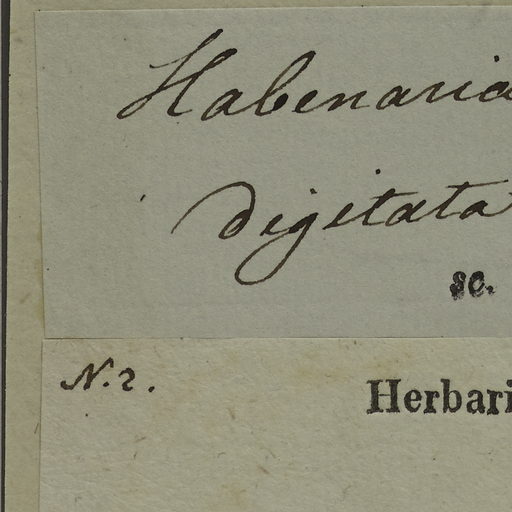 Habenaria
digitata
sc.
N. 2.
Herbari